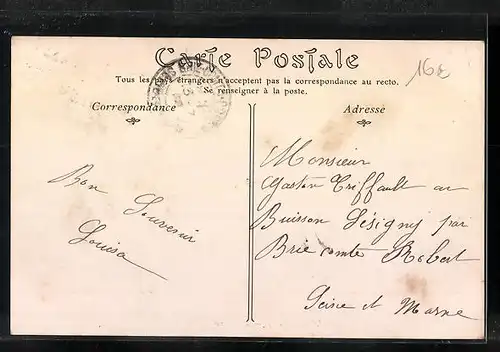 Carte Postale
Tous les pays étrangers n'acceptent pas la correspondance au recto.
Se renseigner à la poste.
Correspondance
Adresse
16E
Bon
Souvenir
Louisa
Monsieur
Gaston Triffault au
Buisson Lésigny par
Brie comte Robert
Seine et Marne